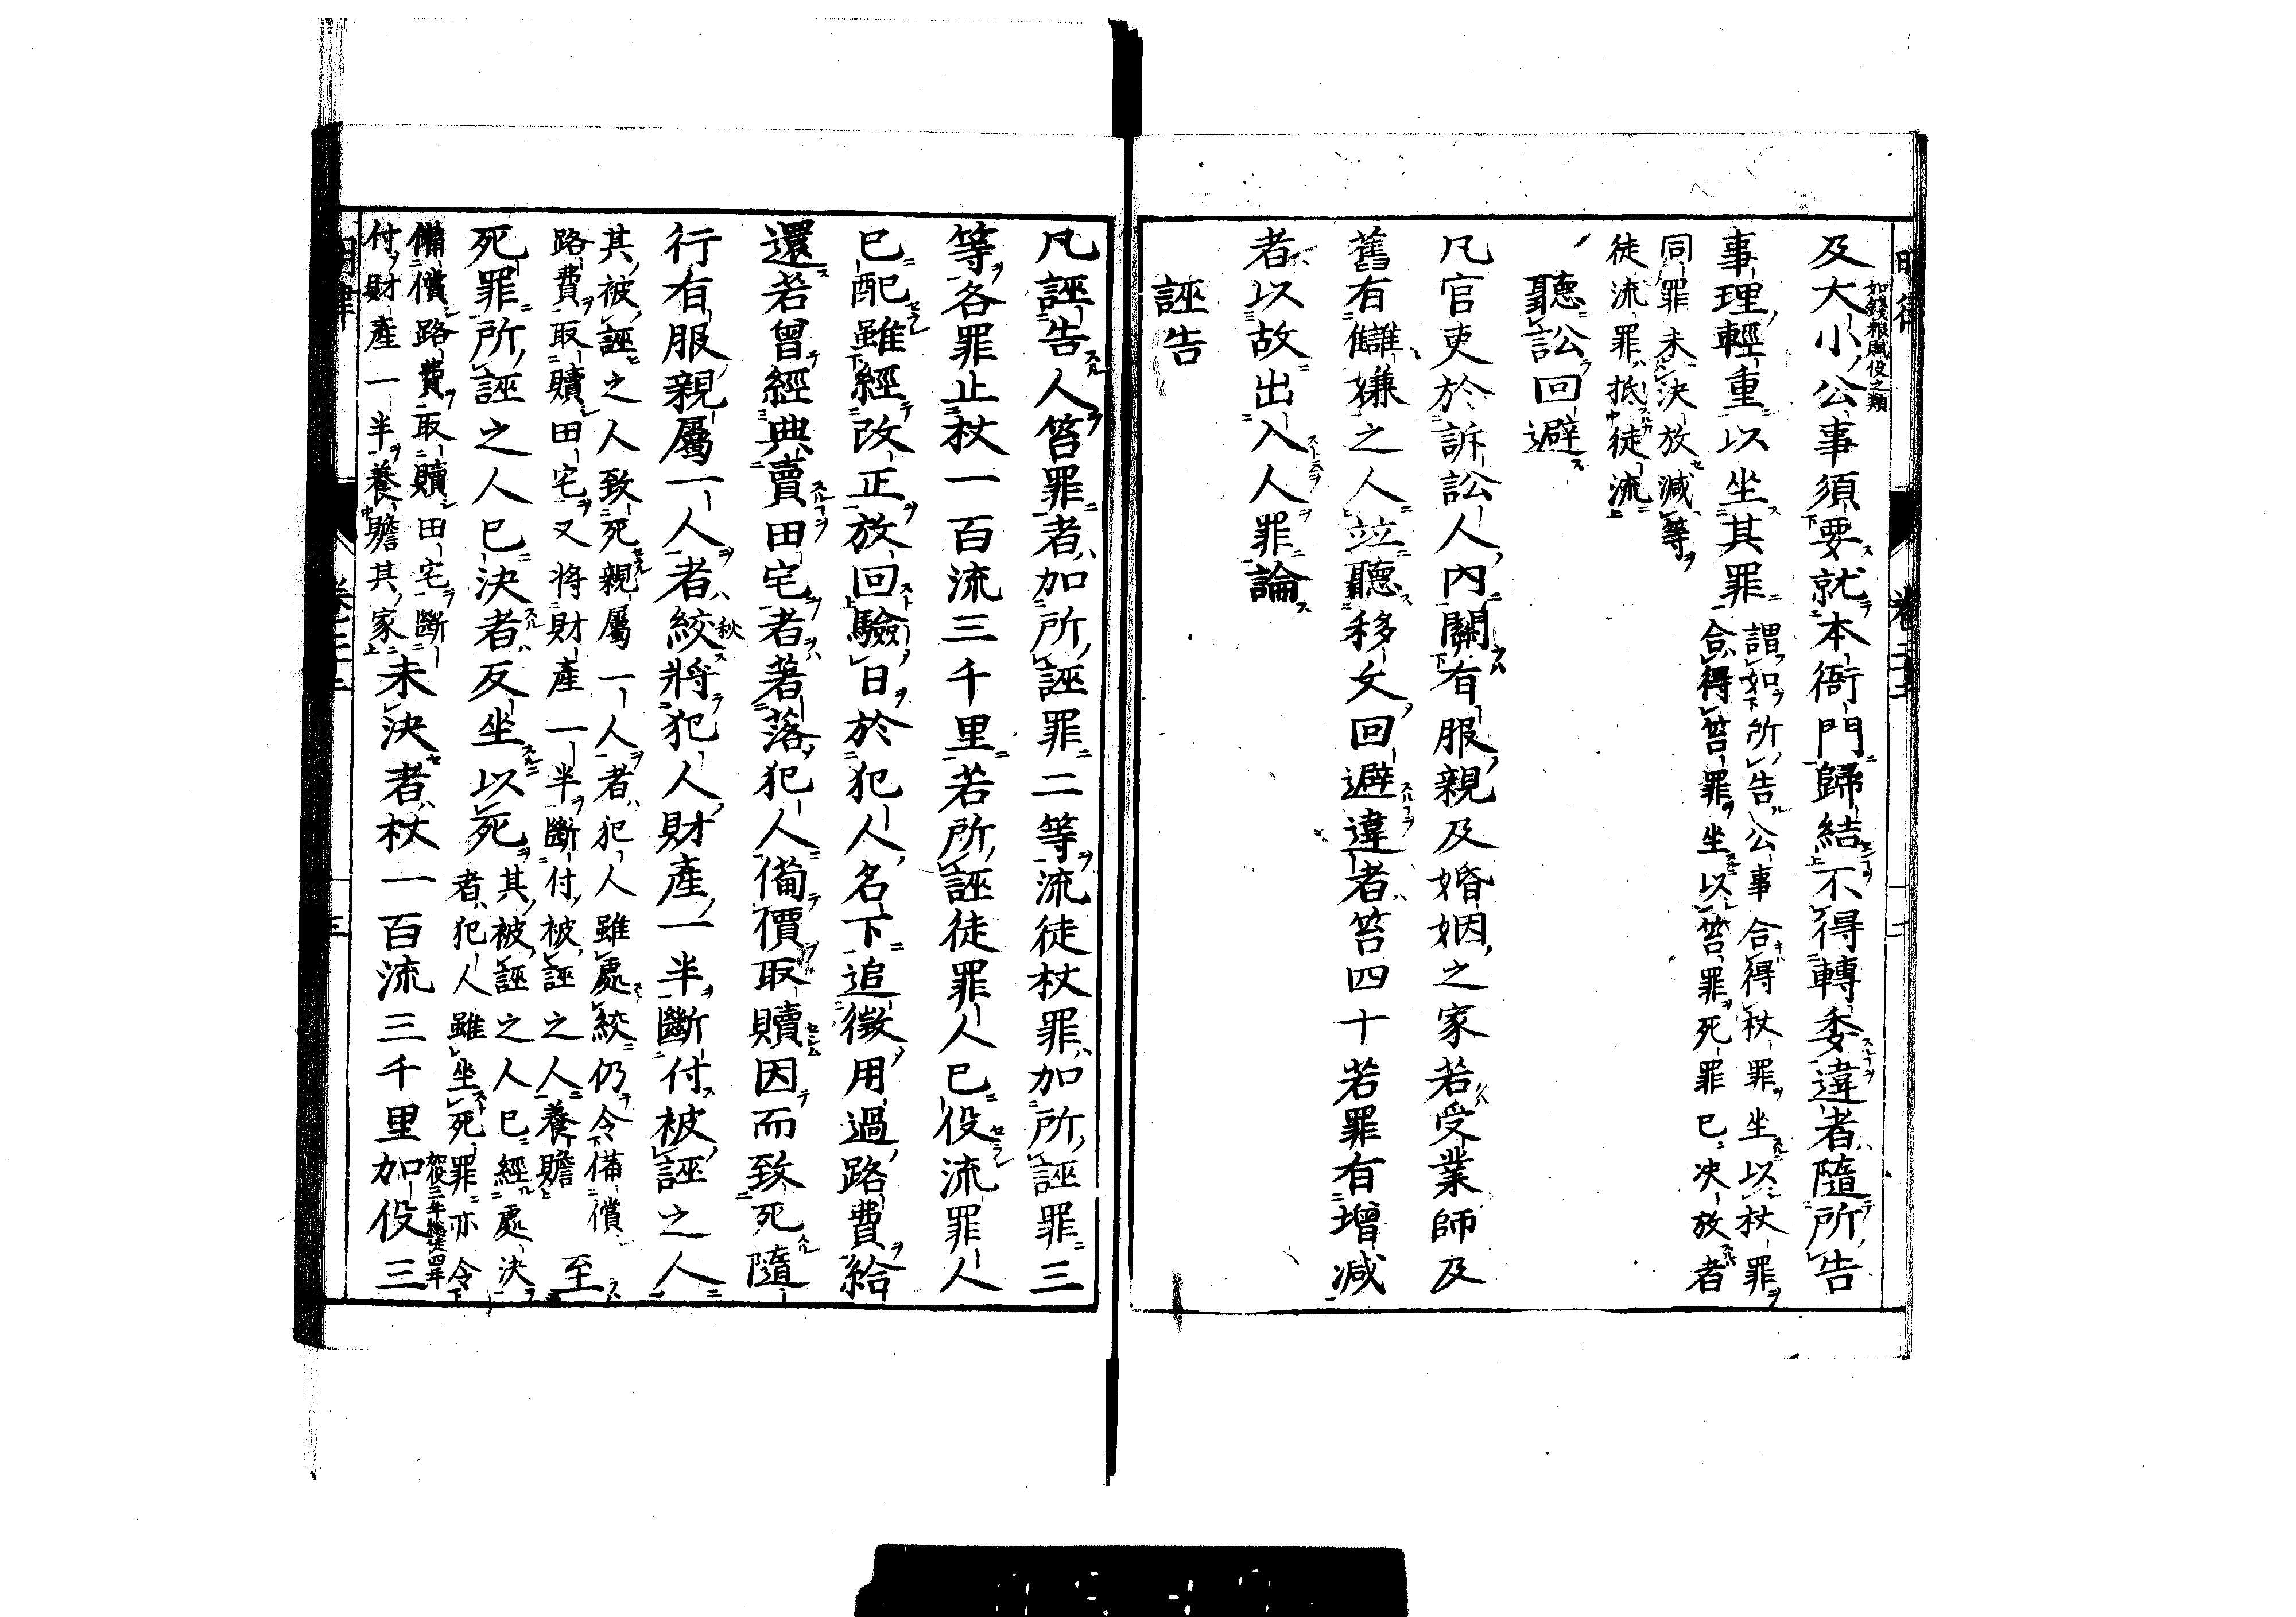 及大小公事須要就本衙門歸結不得轉委違者隨所告
如錢粮賦役之類
事理輕重以坐其罪
謂如所告公事合得杖罪坐以杖罪
合得笞罪坐以笞罪死罪已决放者
同罪未決放減等
徒流罪抵徒流
聽訟回避
凡官吏於訴訟人內關有服親及婚姻之家若受業師及
舊有讎嫌之人竝聽移文回避違者笞四十若罪有增減
者以故出入人罪論
誣告
凡誣告人笞罪者加所誣罪二等流徒杖罪加所誣罪三
等各罪止杖一百流三千里若所誣徒罪人已役流罪人
已配雖經改正放回驗日於犯人名下追徵用過路費給
還若曾經典賣田宅者著落犯人備價取贖因而致死隨
行有服親屬一人者絞將犯人財產一半斷付被誣之人
秋
其被誣之人致死親屬一人者犯人雖處絞仍令備償
路費取贖田宅又將財產一半斷付被誣之人養贍
至
死罪所誣之人已決者反坐以死
其被誣之人已經處決
者犯人雖坐死罪亦令
備償路費取贖田宅斷
付財產一半養贍其家
未決者杖一百流三千里加役三
加役三年總徒四年